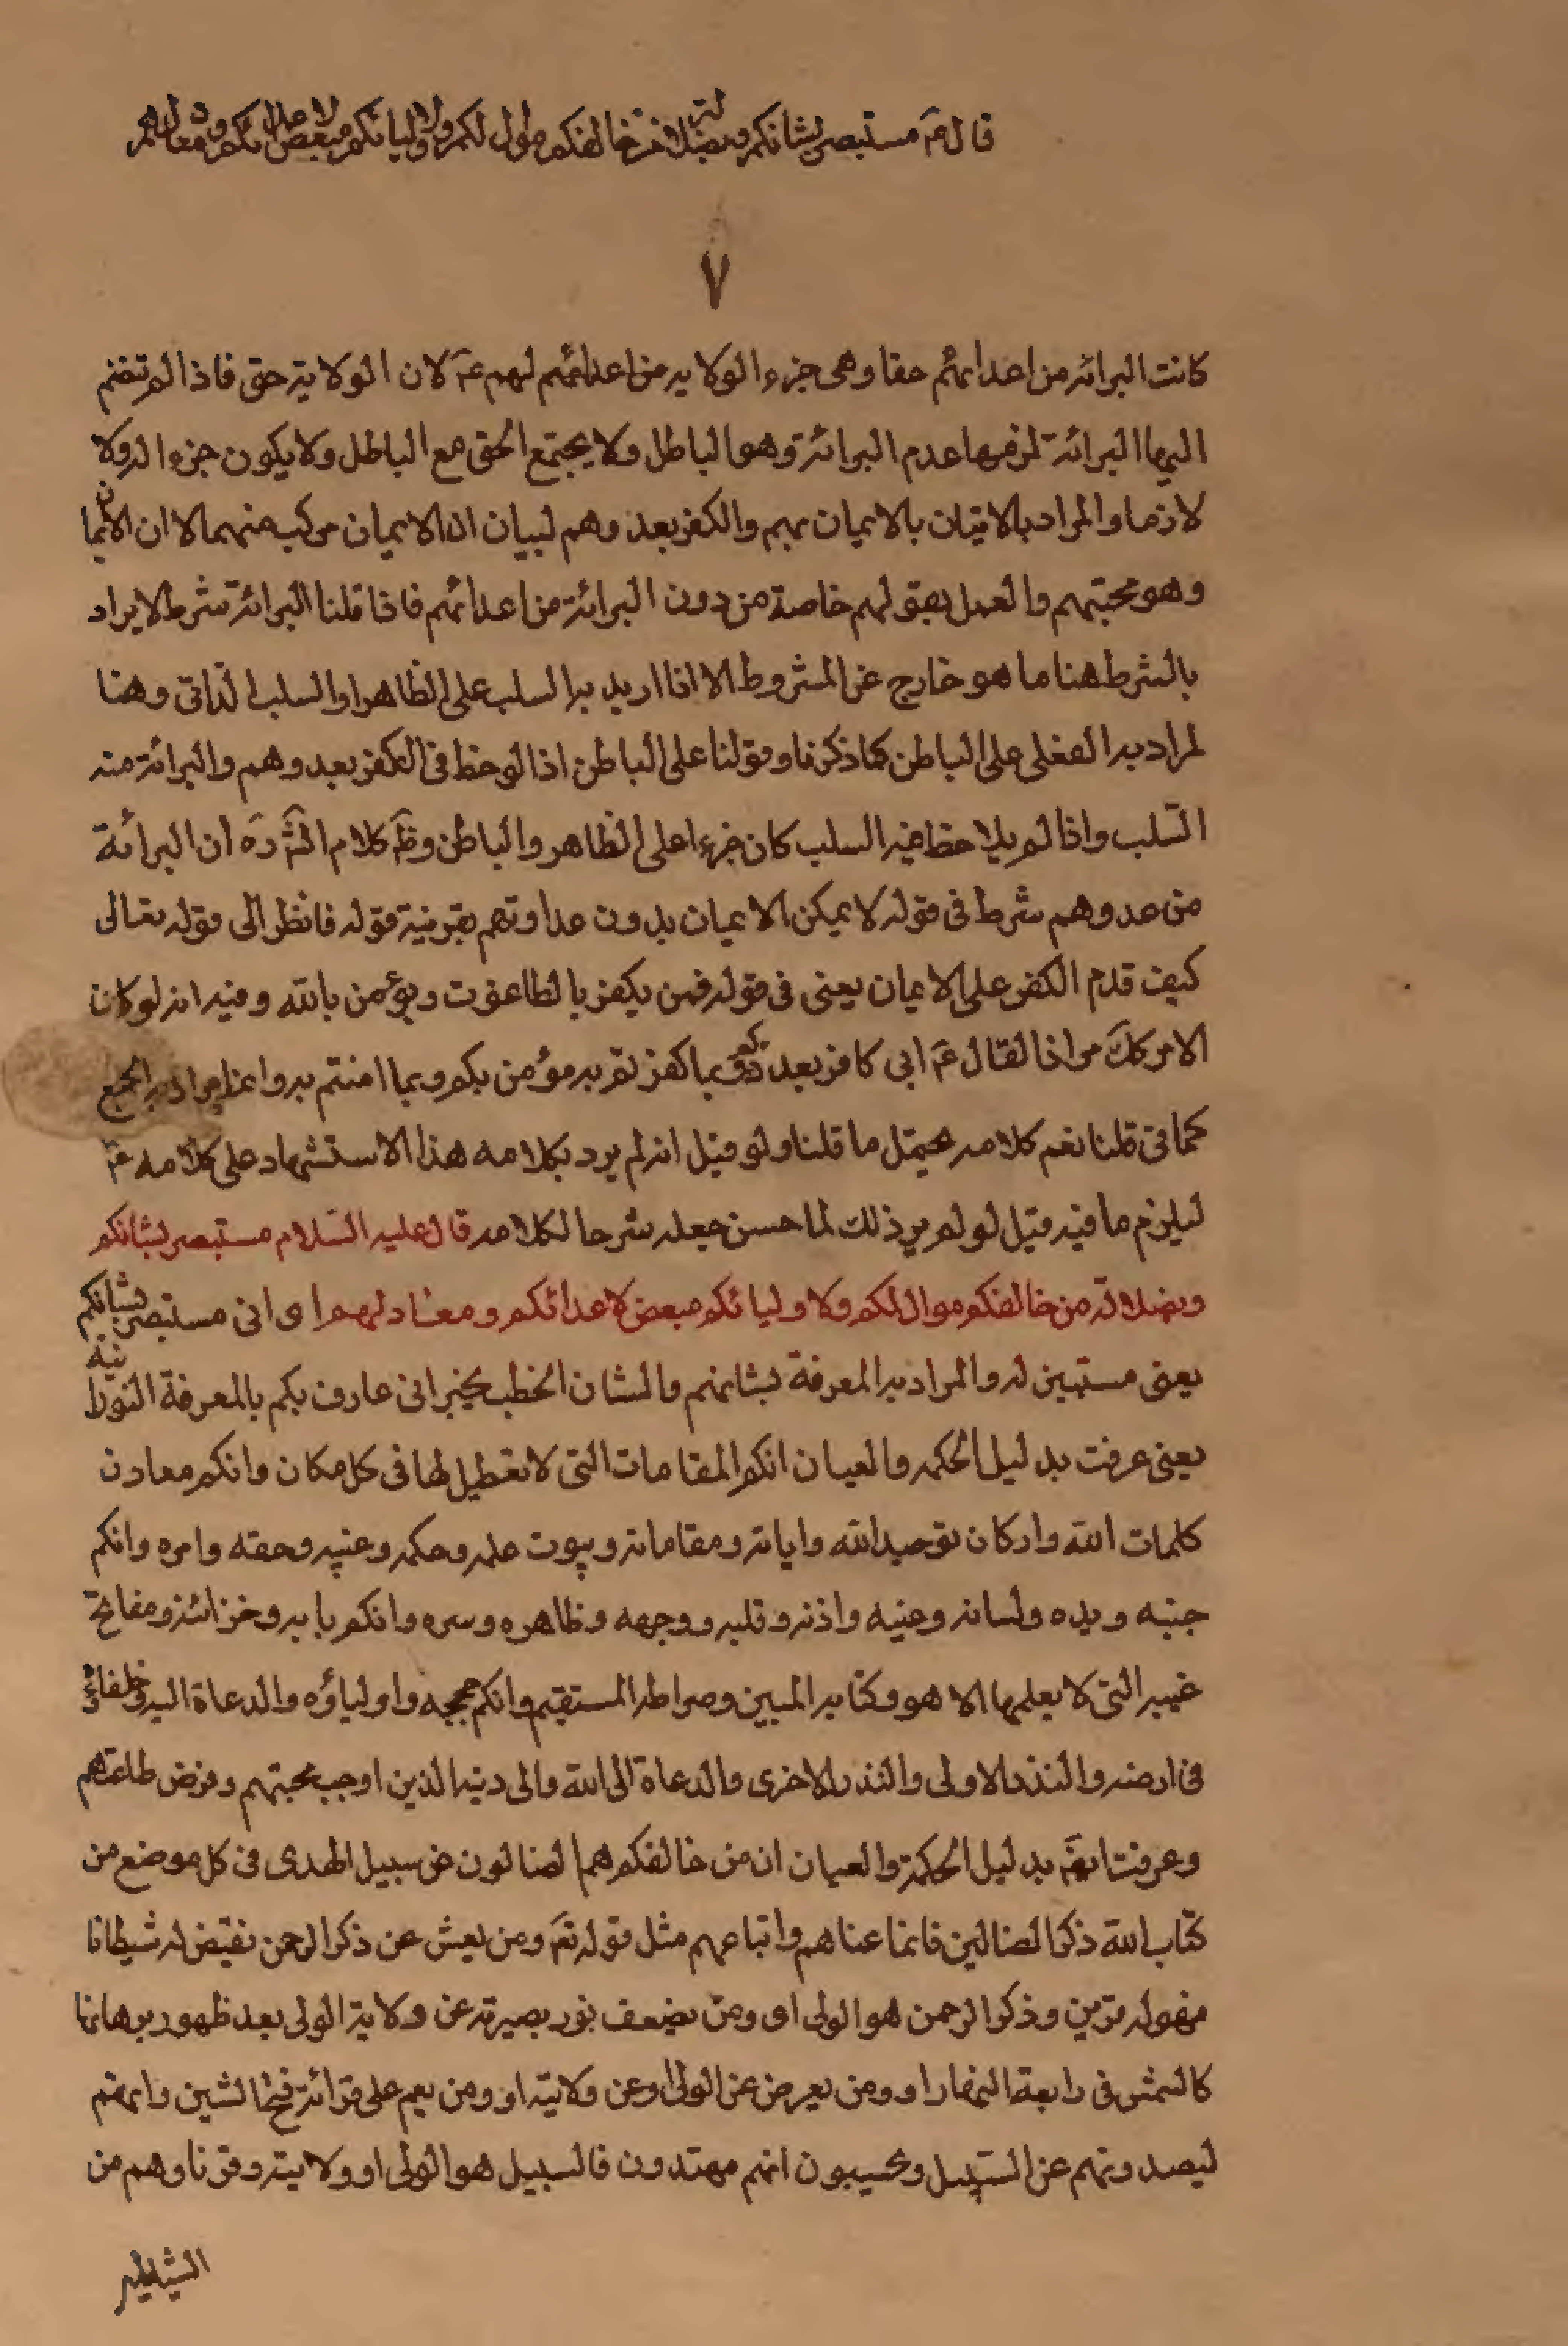 قال ع مستبصر بشانكم وبضلالة من خالفكم موال لكم ولاوليائكم مبغض لاعدائكم ومعاد لهم
٧
كانت البرائة من اعدائهم حقا وهى جزء الولاية من اعدائهم لهم ع لان الولاية حق فاذا لم تضم
اليها البرائة لزمها عدم البرائة وهو الباطل ولا يجتمع الحق مع الباطل ولا يكون جزء له ولا
لازما والمراد بالاتيان بالايمان بهم والكفر بعدوهم لبيان ان الايمان مركب منهما لا ان الايمان
وهو محبتهم والعمل بقولهم خاصة من دون البرائة من اعدائهم فاذا قلنا البرائة شرط لا يراد
بالشرط هنا ما هو خارج عن المشروط الا اذا اريد به السلب على الظاهر او السلب الذاتى وهنا
لمراد به الفعلى على الباطن كما ذكرنا وقولنا على الباطن اذا لوحظ فى الكفر بعدوهم والبرائة منه
السلب واذا لم يلاحظ فيه السلب كان جزءا على الظاهر والباطن وظ كلام الش ره ان البرائة
من عدوهم شرط فى قوله لا يمكن الايمان بدون عداوتهم بقرينة قوله فانظر الى قوله تعالى
كيف قدم الكفر على الايمان يعنى فى قوله فمن يكفر بالطاغوت ويؤمن بالله وفيه انه لو كان
الامر كك مرادا لقال ع انى كافر بعدوكم وبما كفرتم به مؤمن بكم وبما امنتم به وانما مراده الجمع
كما فى قلنا نعم كلامه يحتمل ما قلنا ولو قيل انه لم يرد بكلامه هذا الاستشهاد على كلامه ع
ليلزم ما فيه قيل لو لم يرد ذلك لما حسن جعله شرحا لكلامه قال عليه السلام مستبصر بشانكم
وبضلالة من خالفكم موال لكم ولاوليائكم مبغض لاعدائكم ومعاد لهم اى انى مستبصر بشانكم
يعنى مستبين له والمراد به المعرفة بشانهم والشان الخطب يخبر انى عارف بكم بالمعرفة النورانية
يعنى عرفت بدليل الحكمة والعيان انكم المقامات التى لا تعطيل لها فى كل مكان وانكم معادن
كلمات الله واركان توحيد الله واياته ومقاماته وبيوت علمه وحكمه وغيبه وحقه وامره وانكم
جنبه ويده ولسانه وعينه واذنه وقلبه ووجهه وظاهره وسره وانكم بابه وخزائنه ومفاتح
غيبه التى لا يعلمها الا هو وكتابه المبين وصراطه المستقيم وانكم حججه واولياؤه والدعاة اليه وخلفاؤه
فى ارضه والنذر الاولى والنذر الاخرى والدعاة الى الله والى دينه الذين اوجب محبتهم وفرض طاعتهم
وعرفت ايضا بدليل الحكمة والعيان ان من خالفكم هم الضالون عن سبيل الهدى فى كل موضع من
كتاب الله ذكر الضالين فانما عناهم واتباعهم مثل قوله تع ومن يعش عن ذكر الرحمن نقيض له شيطانا
فهو له قرين وذكر الرحمن هو الولى اى ومن يضعف نور بصيرته عن ولاية الولى بعد ظهور برهانها
كالشمس فى رابعة النهار او ومن يعرض عن الولى او عن ولايته او ومن يعم على قرائة فتح الشين وانهم
ليصدونهم عن السبيل ويحسبون انهم مهتدون فالسبيل هو الولى او ولايته وقرناوهم من
الشياطين